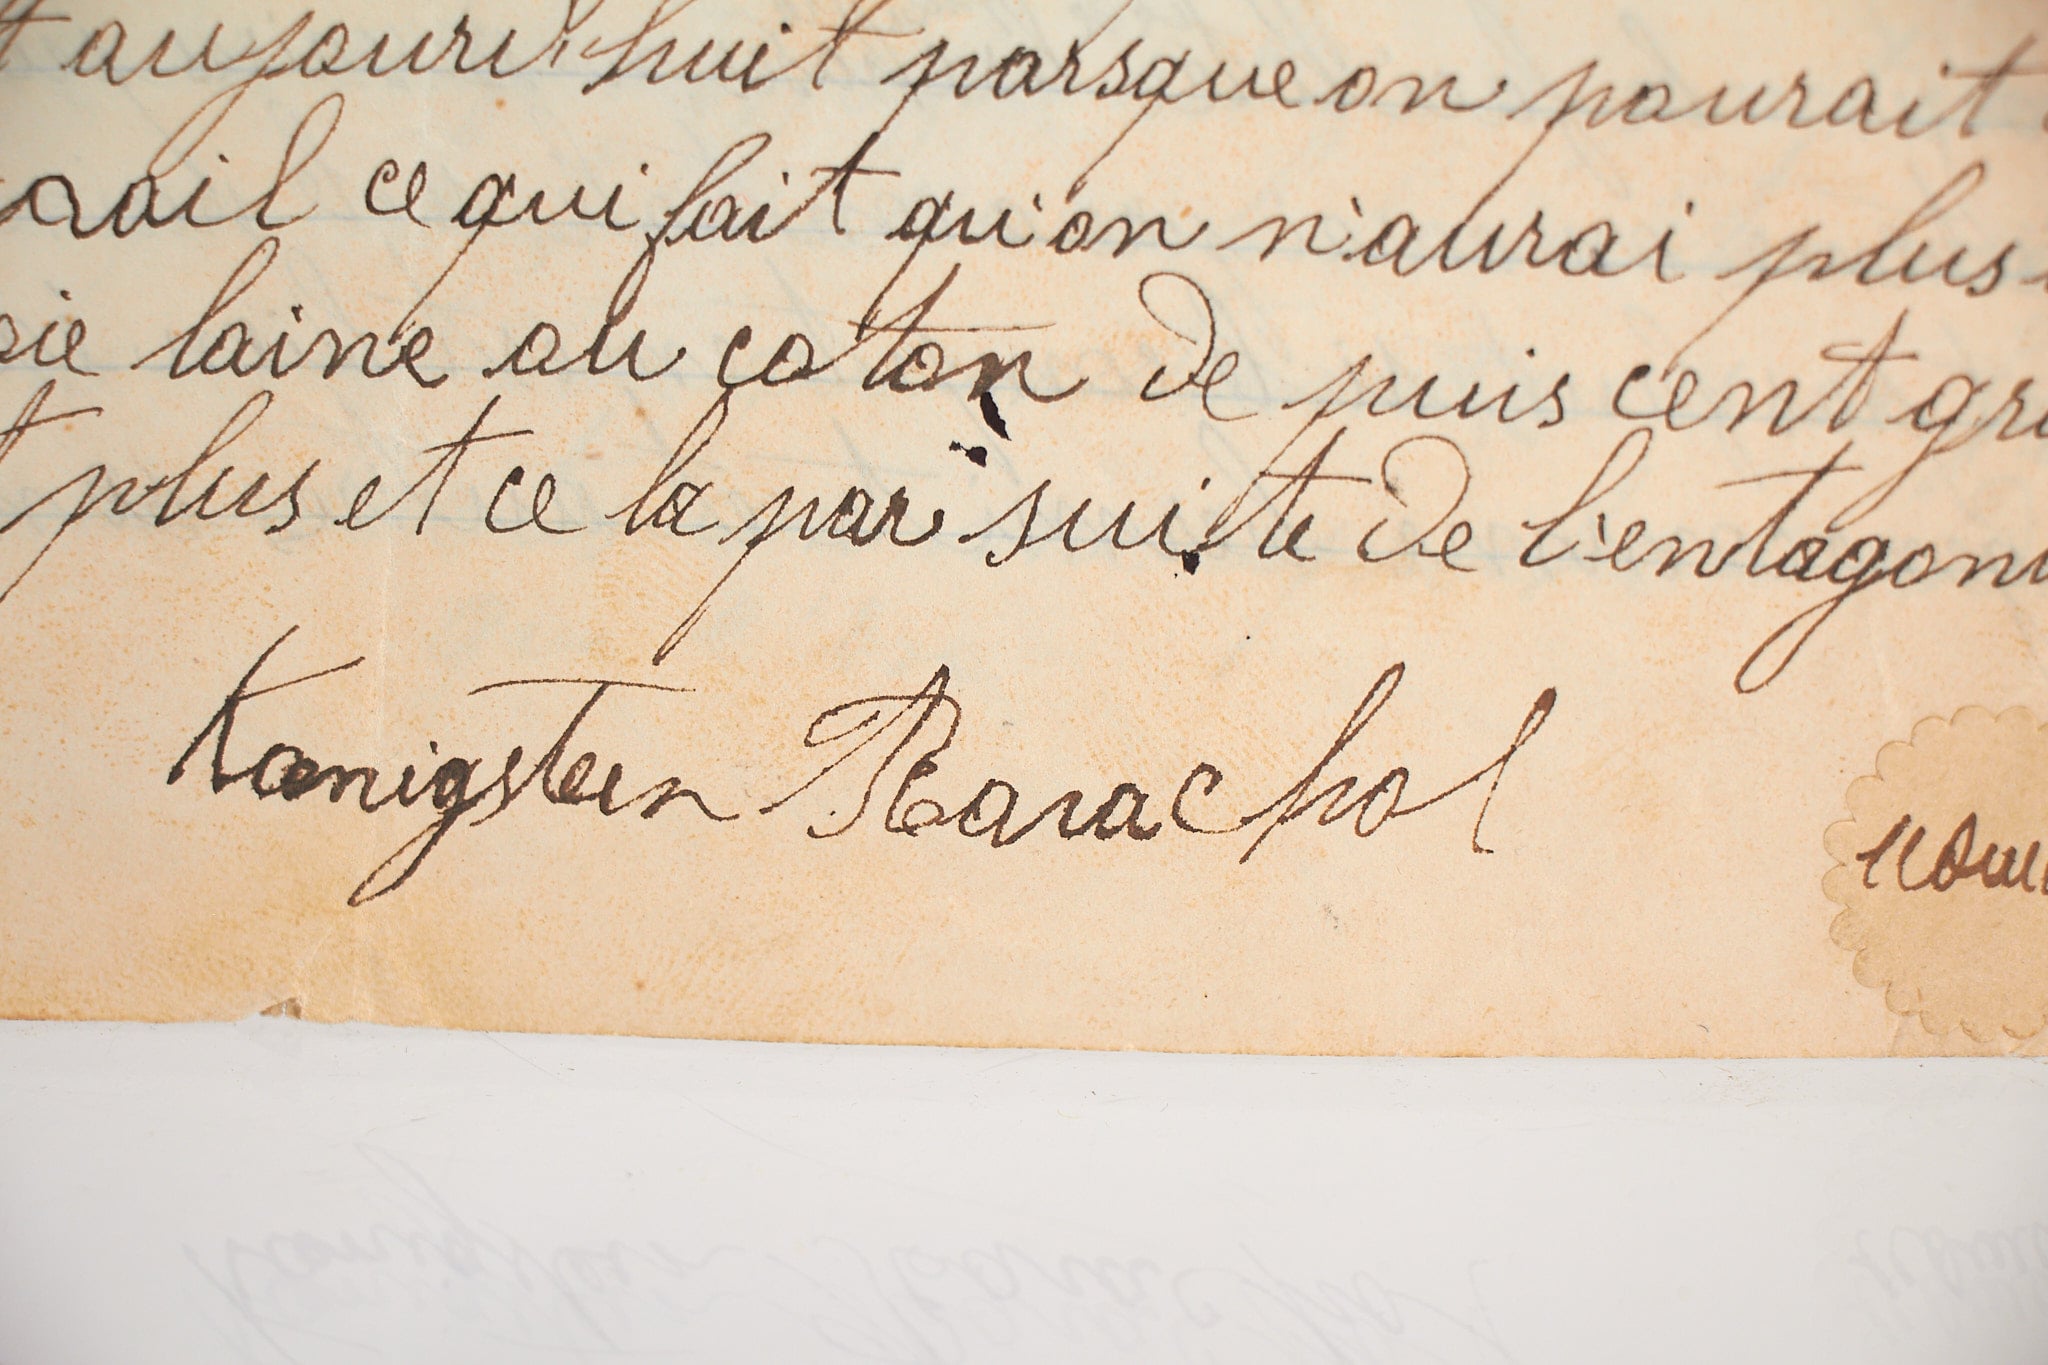 t aujourd'huit parsque on pourait
avail ce qui fait qu'on n'aurai plus
oie laine ou coton de puis cent gr
t plus et ce la par suite de l'entagoni
Kœnigstein Ravachol